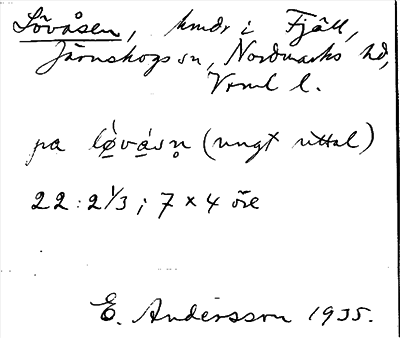 Lövåsen, hmdr i Fjäll,
Järnskogs sn, Nordmarks hd,
Vrml l.
pa lø̀vás̥n (ungt uttal)
22:2 1/3; 7 x 4 öre
E. Andersson 1935.